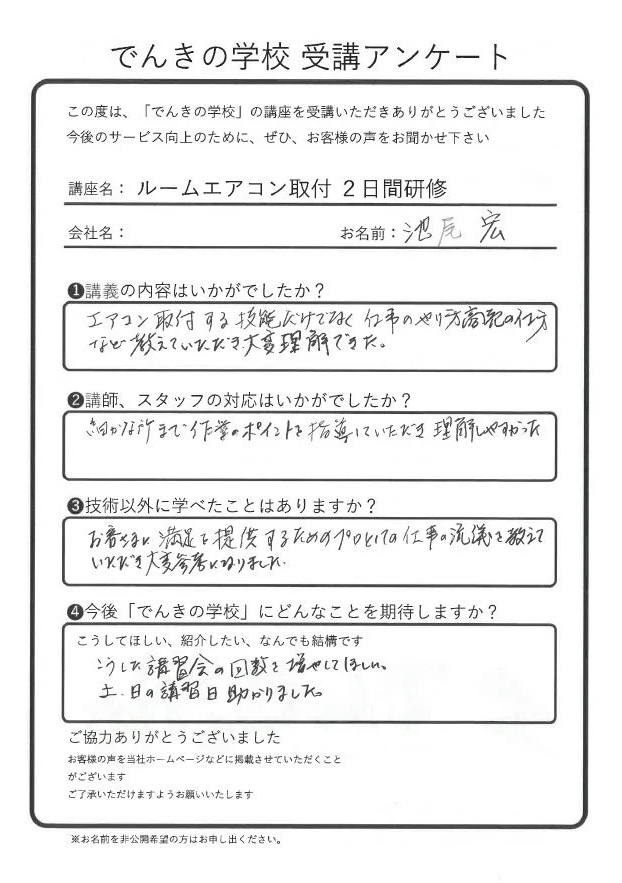 でんきの学校 受講アンケート
この度は、「でんきの学校」の講座を受講いただきありがとうございました
今後のサービス向上のために、ぜひ、お客様の声をお聞かせ下さい
講座名： ルームエアコン取付 2日間研修
会社名： お名前：池尻 宏
❶講義の内容はいかがでしたか？
エアコン取付する技能だけでなく 仕事のやり方商売の仕方
など教えていただき大変理解できた。
❷講師、スタッフの対応はいかがでしたか？
細かな所まで作業のポイントを指導していただき 理解しやすかった
❸技術以外に学べたことはありますか？
お客さまに満足を提供するためのプロとしての仕事の流儀を教えて
いただき大変参考になりました.
❹今後「でんきの学校」にどんなことを期待しますか？
こうしてほしい、紹介したい、なんでも結構です
こうした講習会の回数を増やしてほしい。
土.日の講習日助かりました。
ご協力ありがとうございました
お客様の声を当社ホームページなどに掲載させていただくこと
がございます
ご了承いただけますようお願いいたします
※お名前を非公開希望の方はお申し出ください。